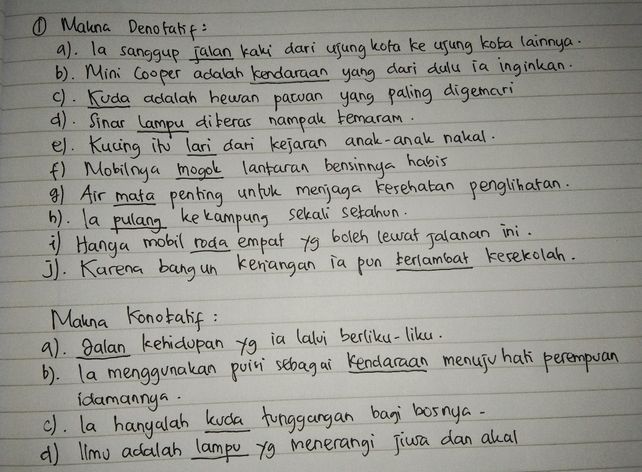 ① Makna Denotatif :
a). Ia sanggup jalan kaki dari ujung kota ke ujung kota lainnya.
b). Mini Cooper adalah kendaraan yang dari dulu ia inginkan.
c). Kuda adalah hewan pacuan yang paling digemari
d). Sinar lampu diteras nampak temaram.
e). Kucing itu lari dari kejaran anak-anak nakal.
f) Mobilnya mogok lantaran bensinnya habis
g) Air mata penting untuk menjaga kesehatan penglihatan.
h). Ia pulang ke kampung sekali setahun.
i) Hanya mobil roda empat yg boleh lewat jalanan ini.
j). Karena bangun kesiangan ia pun terlambat kesekolah.
Makna Konotatif :
a). Jalan kehidupan yg ia lalui berliku-liku.
b). Ia menggunakan puisi sebagai kendaraan menuju hati perempuan
idamannya.
c). Ia hanyalah kuda tunggangan bagi bosnya -
d) Ilmu adalah lampu yg menerangi jiwa dan akal